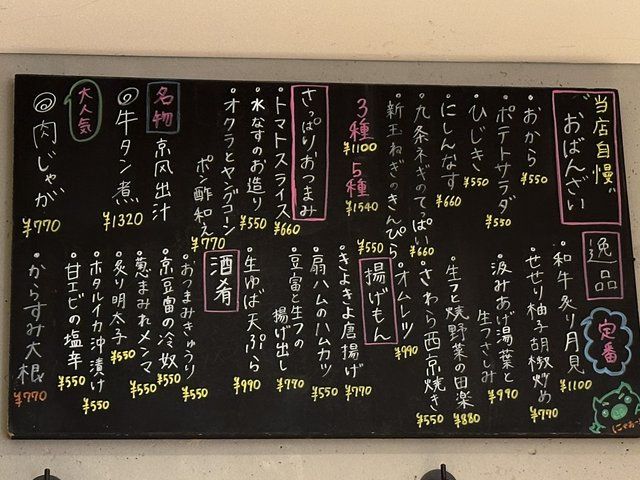 当店自慢
おばんざい
・おから
¥550
・ポテトサラダ
¥550
・ひじき
¥550
・にしんなす
¥660
・九条ネギのてっぱい
¥660
・新玉ねぎのきんぴら
¥550
3種
¥1100
5種
¥1540
さっぱりおつまみ
・トマトスライス
¥660
・水なすのお造り
¥550
・オクラとヤングコーン
ポン酢和え
¥770
名物
京風出汁
◎牛タン煮
¥1320
大人気
◎肉じゃが
¥770
逸品
定番
・和牛炙り月見
¥1100
・せせり柚子胡椒炒め
¥770
・汲みあげ湯葉と
生フさしみ
¥990
・生フと焼野菜の田楽
¥880
・さわら西京焼き
¥550
・オムレツ
¥990
揚げもん
・きよきよ唐揚げ
¥770
・扇ハムのハムカツ
¥550
・豆富と生フの
揚げ出し
¥770
・生ゆば天ぷら
¥990
酒肴
・おつまみきゅうり
¥550
・京豆富の冷奴
¥550
・葱まみれメンマ
¥550
・炙り明太子
¥550
・ホタルイカ沖漬け
¥550
・甘エビの塩辛
¥550
・からすみ大根
¥770